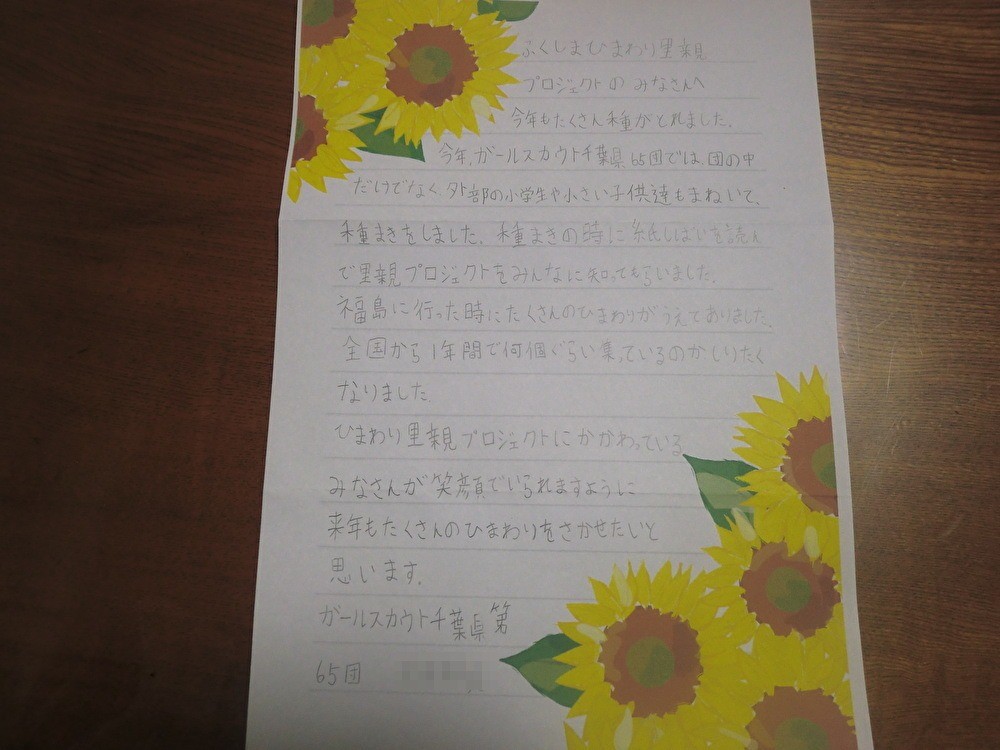 ふくしまひまわり里親
プロジェクトのみなさんへ
今年もたくさん種がとれました。
今年、ガールスカウト千葉県65団では、団の中
だけでなく、外部の小学生や小さい子供達もまねいて、
種まきをしました。種まきの時に紙しばいを読ん
で里親プロジェクトをみんなに知ってもらいました。
福島に行った時にたくさんのひまわりがうえてありました。
全国から1年間で何個ぐらい集っているのかしりたく
なりました。
ひまわり里親プロジェクトにかかわっている
みなさんが笑顔でいられますように
来年もたくさんのひまわりをさかせたいと
思います。
ガールスカウト千葉県第
65団